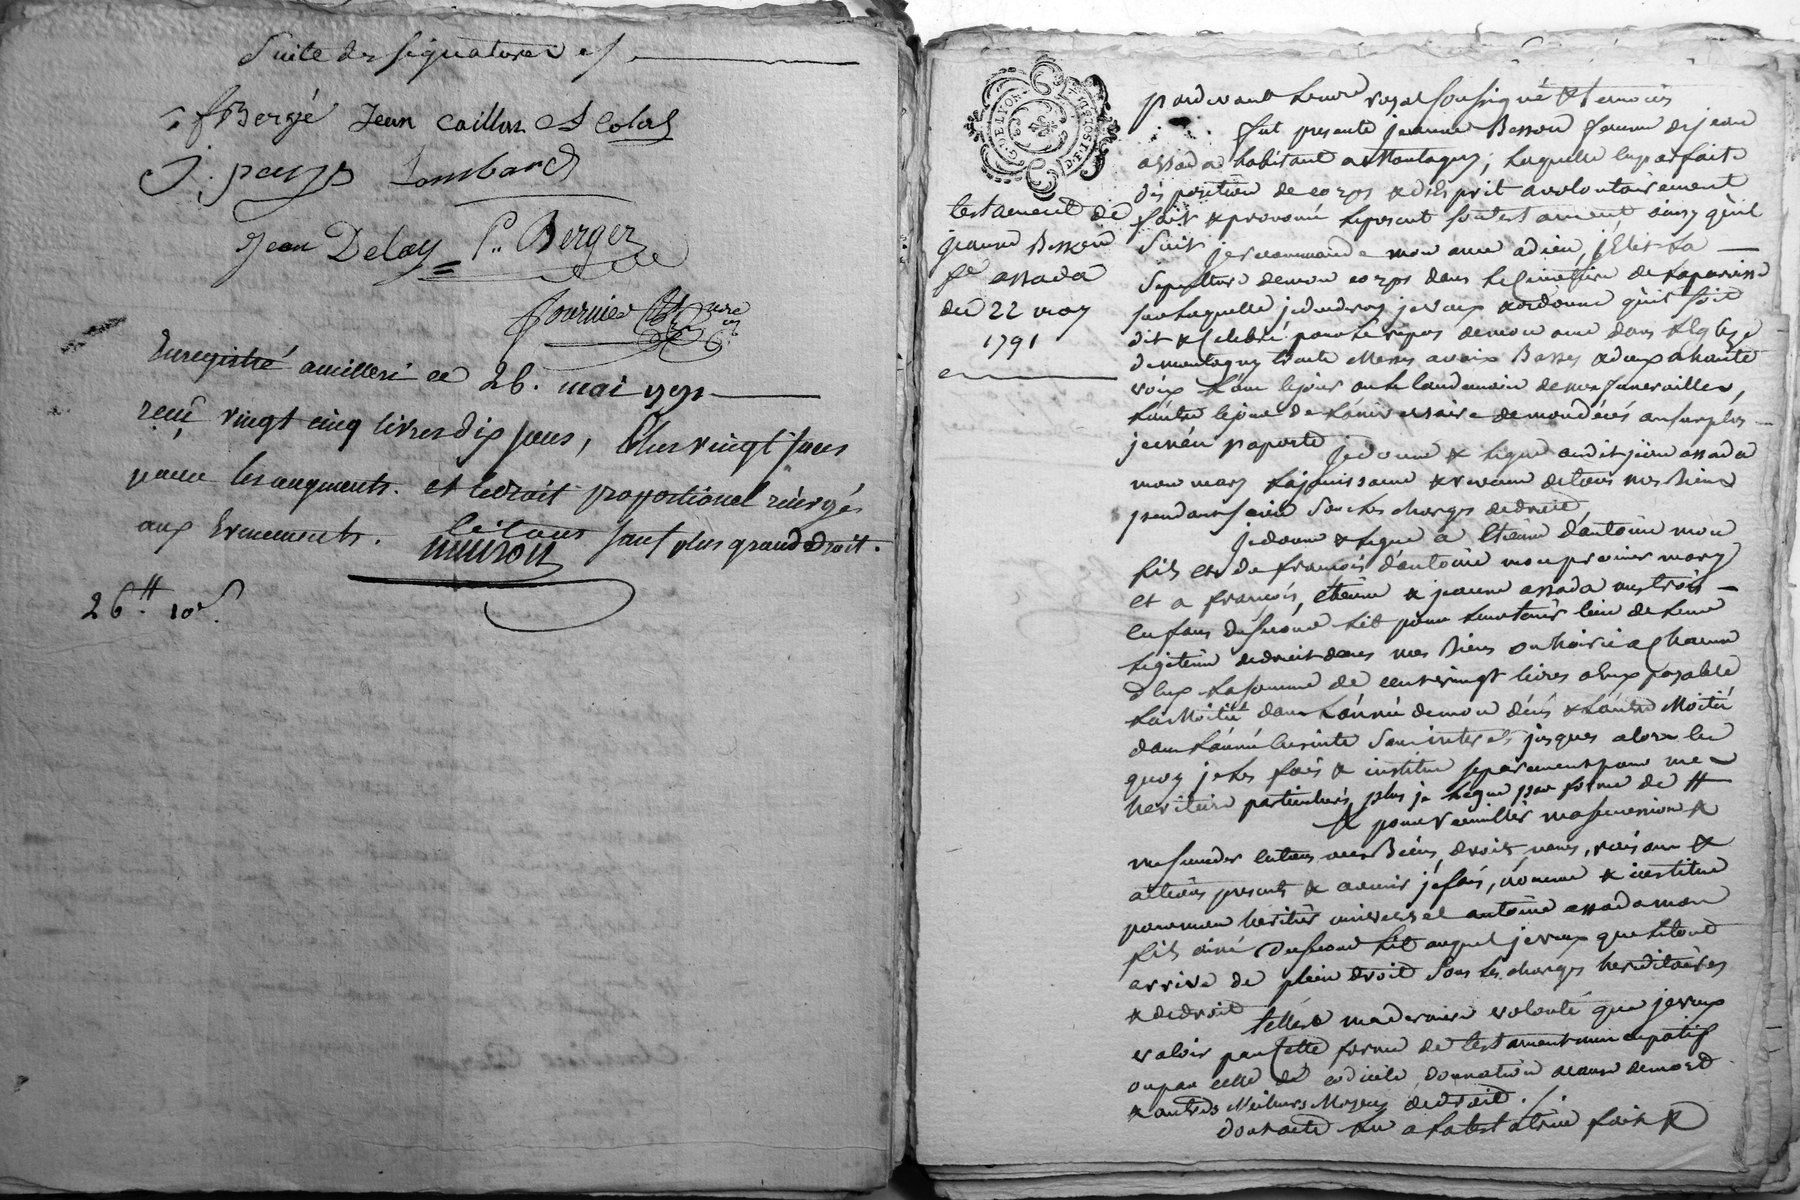 Suite des signatures
f Bergé Jean Caillas
J. pays Lombard
Jean Delay P. Berger
fournier
Enregistré a milleri ce 26. mai 1791
reçu vingt cinq livres dix sous, plus vingt sous
pour les augments. et le droit proportionel réservés
aux Evenements. sauf plus grand droit.
26 ₶ 10 s
G. DE LYON
testament de
jeanne Besson
fe assada
du 22 may
1791
pardevant le no.re royal soussigné & temoins
fut presente jeanne Besson femme de jean
assada habitant a Montagny, laquelle en parfaite
disposition de corps & d'esprit a volontairement
fait & prononcé le present son testament ainsy qu'il
suit je recommande mon ame a dieu, j'Elis la
sepulture de mon corps dans le Cimetiere de la paroisse
sur laquelle je decederay je veux & ordonne qu'il soit
dit & Celebré pour le repos de mon ame dans l'Eglize
de montagny trente Messes a voix Basses & deux a haute
voix l'une le jour ou le landemain de mes funerailles,
l'autre le jour de l'aniversaire de mon décés au surplus
je m'en raporte je donne & legue audit jean assada
mon mary la jouissance & revenu de tous mes biens
pendant sa vie sous les charges de droit
je donne & legue a Etienne d'antoine mon
fils et de françois d'antoine mon premier mary
et a francois, etienne & jeanne assada mes trois
enfans du second lit pour leur tenir lieu de leur
legitime de droit dans mes biens ou hoirie a Chacun
d'eux la somme de cent vingt livres a eux payable
la Moitié dans l'année de mon décés & l'autre Moitié
dans l'année suivante sans interets jusques alors en
quoy je les fais & institue separement pour mes
heritiers particuliers, plus je legue par forme de
& pour recueillir ma succession &
me succeder en tous mes Biens, droits, noms, raisons &
actions presents & avenir je fais, nomme & institue
pour mon heritier universel antoine assada mon
fils ainé du second lit auquel je veux que le tout
arrive de plein droit sous les charges hereditaires
& de droit telle est ma derniere volonté que je veux
valoir par cette forme de testament nuncupatif
ou par celle de codicile, donnation a cause de mort
& autres Meilleurs Moyens de droit.
dont acte lu a la testatrice fait &